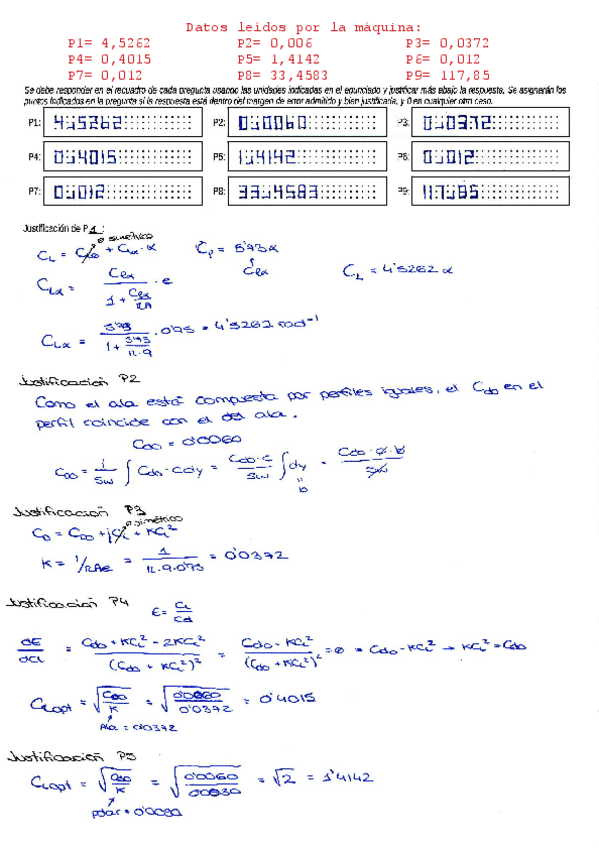 Datos leídos por la máquina:
P1= 4,5262 P2= 0,006 P3= 0,0372
P4= 0,4015 P5= 1,4142 P6= 0,012
P7= 0,012 P8= 33,4583 P9= 117,85
Se debe responder en el recuadro de cada pregunta usando las unidades indicadas en el enunciado y justificar más abajo la respuesta. Se asignarán los
puntos indicados en la pregunta si la respuesta está dentro del margen de error admitido y bien justificada, y 0 en cualquier otro caso.
P1: 4,5262 P2: 0,0060 P3: 0,0372
P4: 0,4015 P5: 1,4142 P6: 0,012
P7: 0,012 P8: 33,4583 P9: 117,85
Justificación de P1:
0 simétrico
CL = CL0 + CLα·α Cp = 5'73α CL = 4'5262 α
Clα
CLα = Clα / (1 + Clα/πA) · e
CLα = 5'73 / (1 + 5'73/(π·9)) · 0'95 = 4'5262 rad⁻¹
Justificación P2
Como el ala está compuesta por perfiles iguales, el Cdo en el
perfil coincide con el del ala.
Cdo = 0'0060
CD0 = 1/Sw ∫ Cdo·c dy = Cdo·c/Sw ∫ dy = Cdo·c·b/Sw
b
Justificación P3
0 simétrico
CD = CD0 + jCL + KCL²
K = 1/πAe = 1/(π·9·0'95) = 0'0372
Justificación P4 E = CL/Cd
dE/dCL = (Cdo + KCL² - 2KCL²)/(Cdo + KCL²)² = (Cdo - KCL²)/(Cdo + KCL²)² = 0 = Cdo - KCL² → KCL² = Cdo
CLopt = √(CD0/K) = √(0'0060/0'0372) = 0'4015
Ala = 0'0372
Justificación P5
CLopt = √(Cdo/K) = √(0'0060/0'0030) = √2 = 1'4142